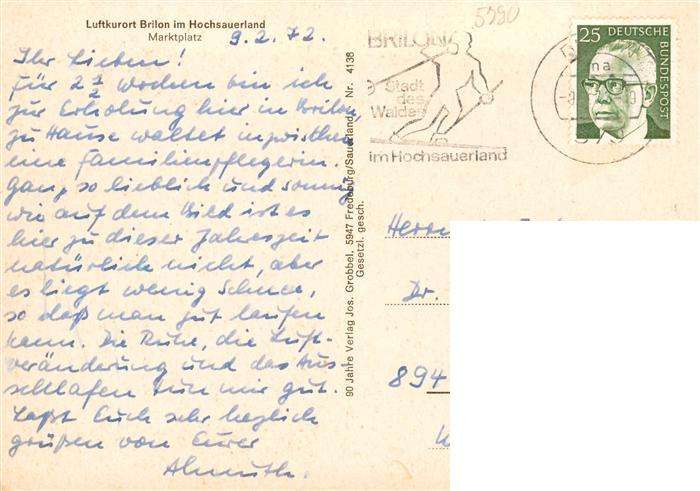 Luftkurort Brilon im Hochsauerland
Marktplatz
9.2.72.
Ihr Lieben!
Für 2 1/2 Wochen bin ich
zur Erholung hier in Brilon,
zu Hause waltet inzwischen
eine Familienpflegerin.
Ganz so lieblich und sonnig
wie auf dem Bild ist es
hier zu dieser Jahreszeit
natürlich nicht, aber
es liegt wenig Schnee,
so daß man gut laufen
kann. Die Ruhe, die Luft-
veränderung und das Aus-
schlafen tun mir gut.
Laßt Euch sehr herzlich
grüßen von Eurer
Almuth.
90 Jahre Verlag Jos. Grobbel, 5947 Fredeburg/Sauerland, Nr. 4138
Gesetzl. gesch.
5790
BRILON
Stadt
des
Waldes
im Hochsauerland
25 DEUTSCHE
BUNDESPOST
Herrn
Dr.
894